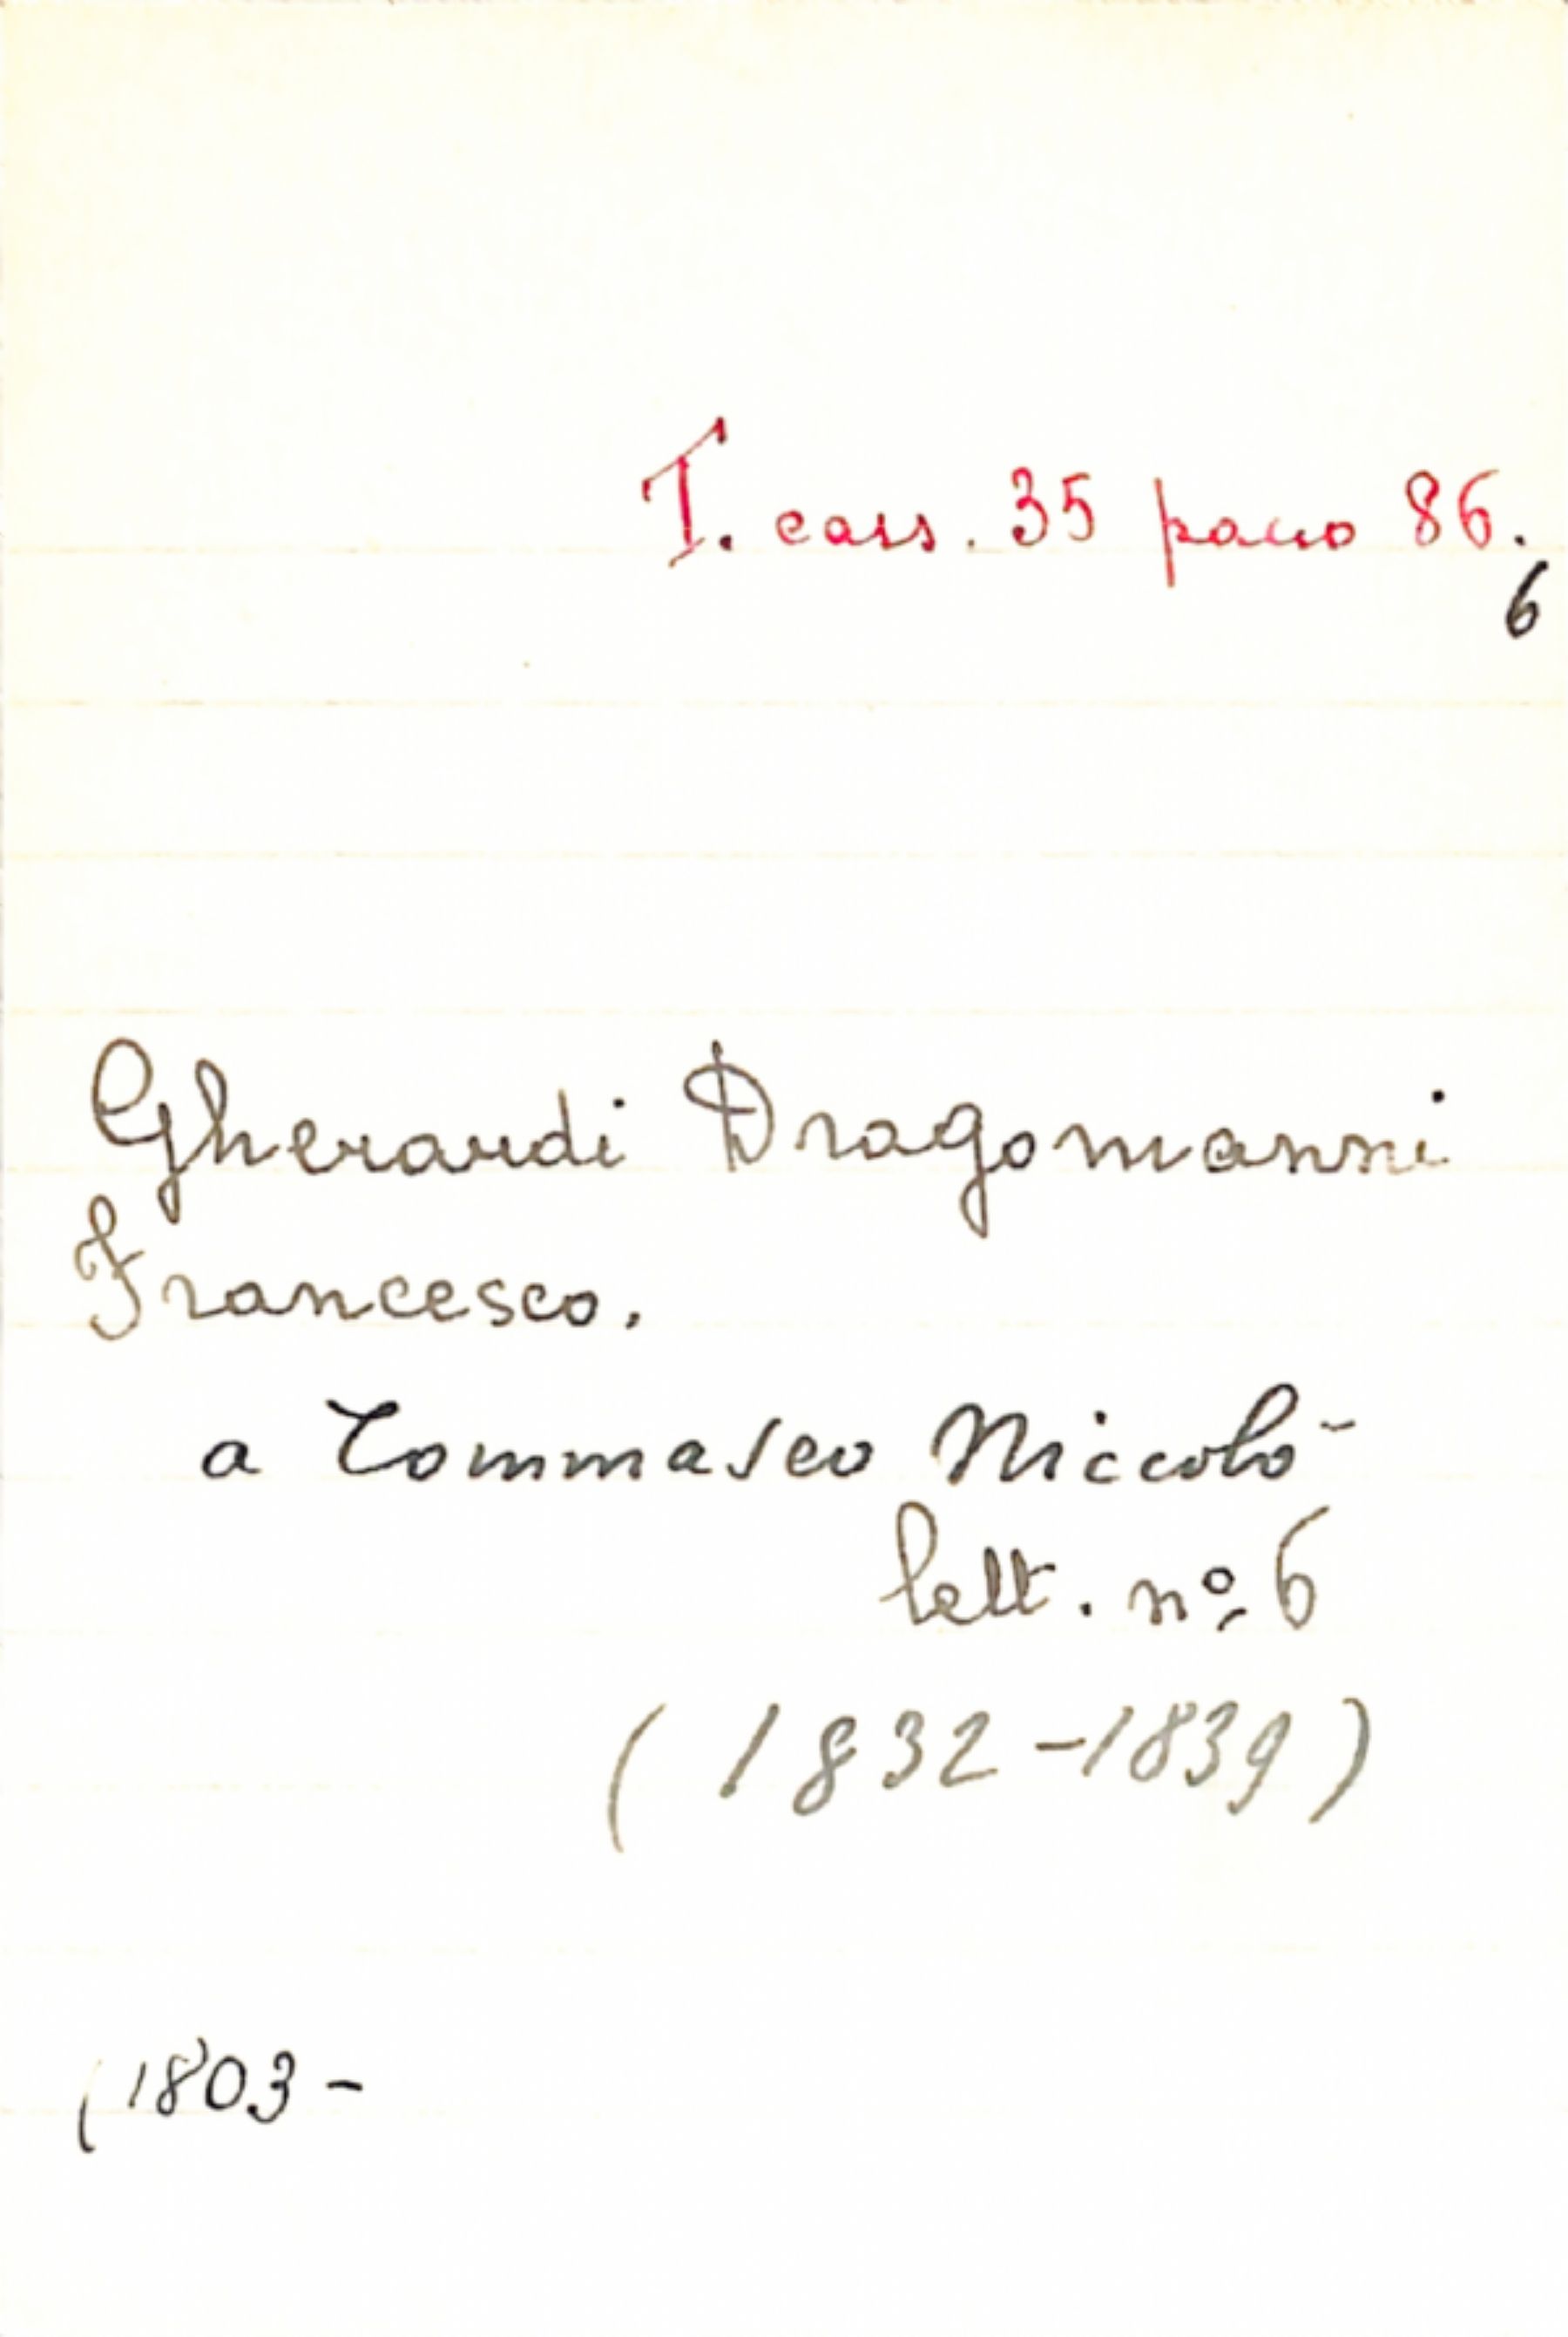 T. cass. 35 pacco 86.
6
Gherardi Dragomanni
Francesco.
a Tommaseo Niccolò
lett. nº 6
(1832-1839)
(1803-